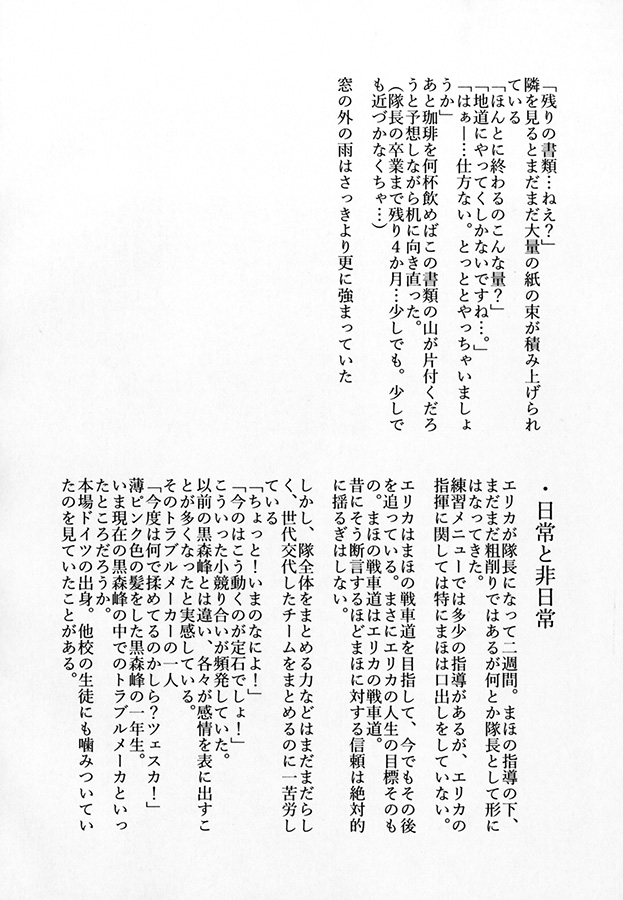 「残りの書類…ねえ？」
隣を見るとまだまだ大量の紙の束が積み上げられ
ている
「ほんとに終わるのこんな量？」
「地道にやってくしかないですね…。」
「はぁー…仕方ない。とっととやっちゃいましょ
うか」
あと珈琲を何杯飲めばこの書類の山が片付くだろ
うと予想しながら机に向き直った。
（隊長の卒業まで残り４か月…少しでも。少しで
も近づかなくちゃ…）
窓の外の雨はさっきより更に強まっていた
・日常と非日常
エリカが隊長になって二週間。まほの指導の下、
まだまだ粗削りではあるが何とか隊長として形に
はなってきた。
練習メニューでは多少の指導があるが、エリカの
指揮に関しては特にまほは口出しをしていない。
エリカはまほの戦車道を目指して、今でもその後
を追っている。まさにエリカの人生の目標そのも
の。まほの戦車道はエリカの戦車道。
昔にそう断言するほどまほに対する信頼は絶対的
に揺るぎはしない。
しかし、隊全体をまとめる力などはまだまだらし
く、世代交代したチームをまとめるのに一苦労し
ている
「ちょっと！いまのなによ！」
「今のはこう動くのが定石でしょ！」
こういった小競り合いが頻発していた。
以前の黒森峰とは違い、各々が感情を表に出すこ
とが多くなったと実感している。
そのトラブルメーカーの一人
「今度は何で揉めてるのかしら？ツェスカ！」
薄ピンク色の髪をした黒森峰の一年生。
いま現在の黒森峰の中でのトラブルメーカといっ
たところだろうか。
本場ドイツの出身。他校の生徒にも噛みついてい
たのを見ていたことがある。